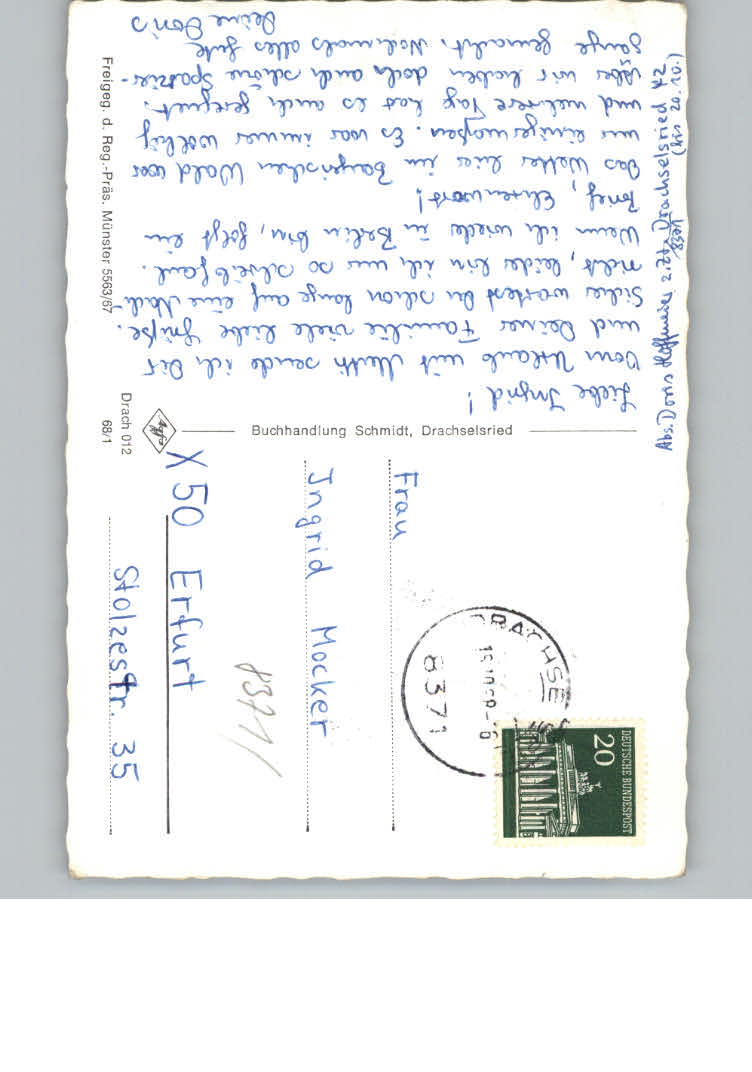 Liebe Ingrid!
Vom Urlaub mit Mutti sende ich Dir
und Deiner Familie viele liebe Grüße.
Sicher wartest Du schon lange auf eine Nach-
richt, leider bin ich nur so schreibfaul.
Wenn ich wieder in Berlin bin, folgt ein
Brief, Ehrenwort!
Das Wetter hier im Bayrischen Wald war
nur einigermaßen. Es war immer wolkig
und mehrere Tage hat es auch geregnet.
Aber wir haben doch auch schöne Spazier-
gänge gemacht. Nochmals alles Gute
Deine Doris
Abs. Doris Hoffmeier z. Zt. Drachselsried 42
(bis 20. 10.)
Freigeg. d. Reg.-Präs. Münster 5563/67
Buchhandlung Schmidt, Drachselsried
Agfa
Drach 012
68/1
Frau
Ingrid Mocker
X 50 Erfurt
Stolzestr. 35
8371
DRACHSE
8371
DEUTSCHE BUNDESPOST
20